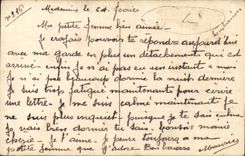 n°226 Medenine le 24 février
Ma petite femme bien aimée.
Je croyais pouvoir te répondre aujourd'hui
avec ma garde en plus un détachement qui est
arrivé je n'ai pas eu un instant à moi
Je n'ai pas beaucoup dormi la nuit dernière
Je suis trop fatigué maintenant pour écrire
une lettre. Je me suis calmé maintenant je
ne suis plus inquiet puisque je te sais calme
Je vais bien dormir tu sais. bonsoir mamie
chérie - Je t'aime. Je pense toujours à ma
petite femme que j'adore. Bon baisers
Maurice